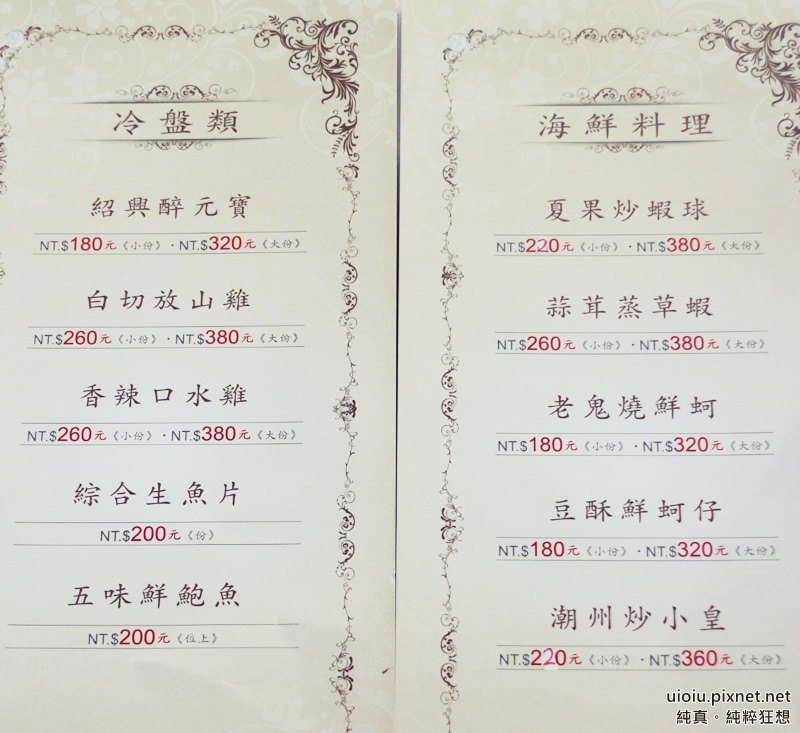 冷盤類
紹興醉元寶
NT.$180元《小份》·NT.$320元《大份》
白切放山雞
NT.$260元《小份》·NT.$380元《大份》
香辣口水雞
NT.$260元《小份》·NT.$380元《大份》
綜合生魚片
NT.$200元《份》
五味鮮鮑魚
NT.$200元《位上》
海鮮料理
夏果炒蝦球
NT.$220元《小份》·NT.$380元《大份》
蒜茸蒸草蝦
NT.$260元《小份》·NT.$380元《大份》
老鬼燒鮮蚵
NT.$180元《小份》·NT.$320元《大份》
豆酥鮮蚵仔
NT.$180元《小份》·NT.$320元《大份》
潮州炒小皇
NT.$220元《小份》·NT.$360元《大份》
uioiu.pixnet.net
純真。純粹狂想